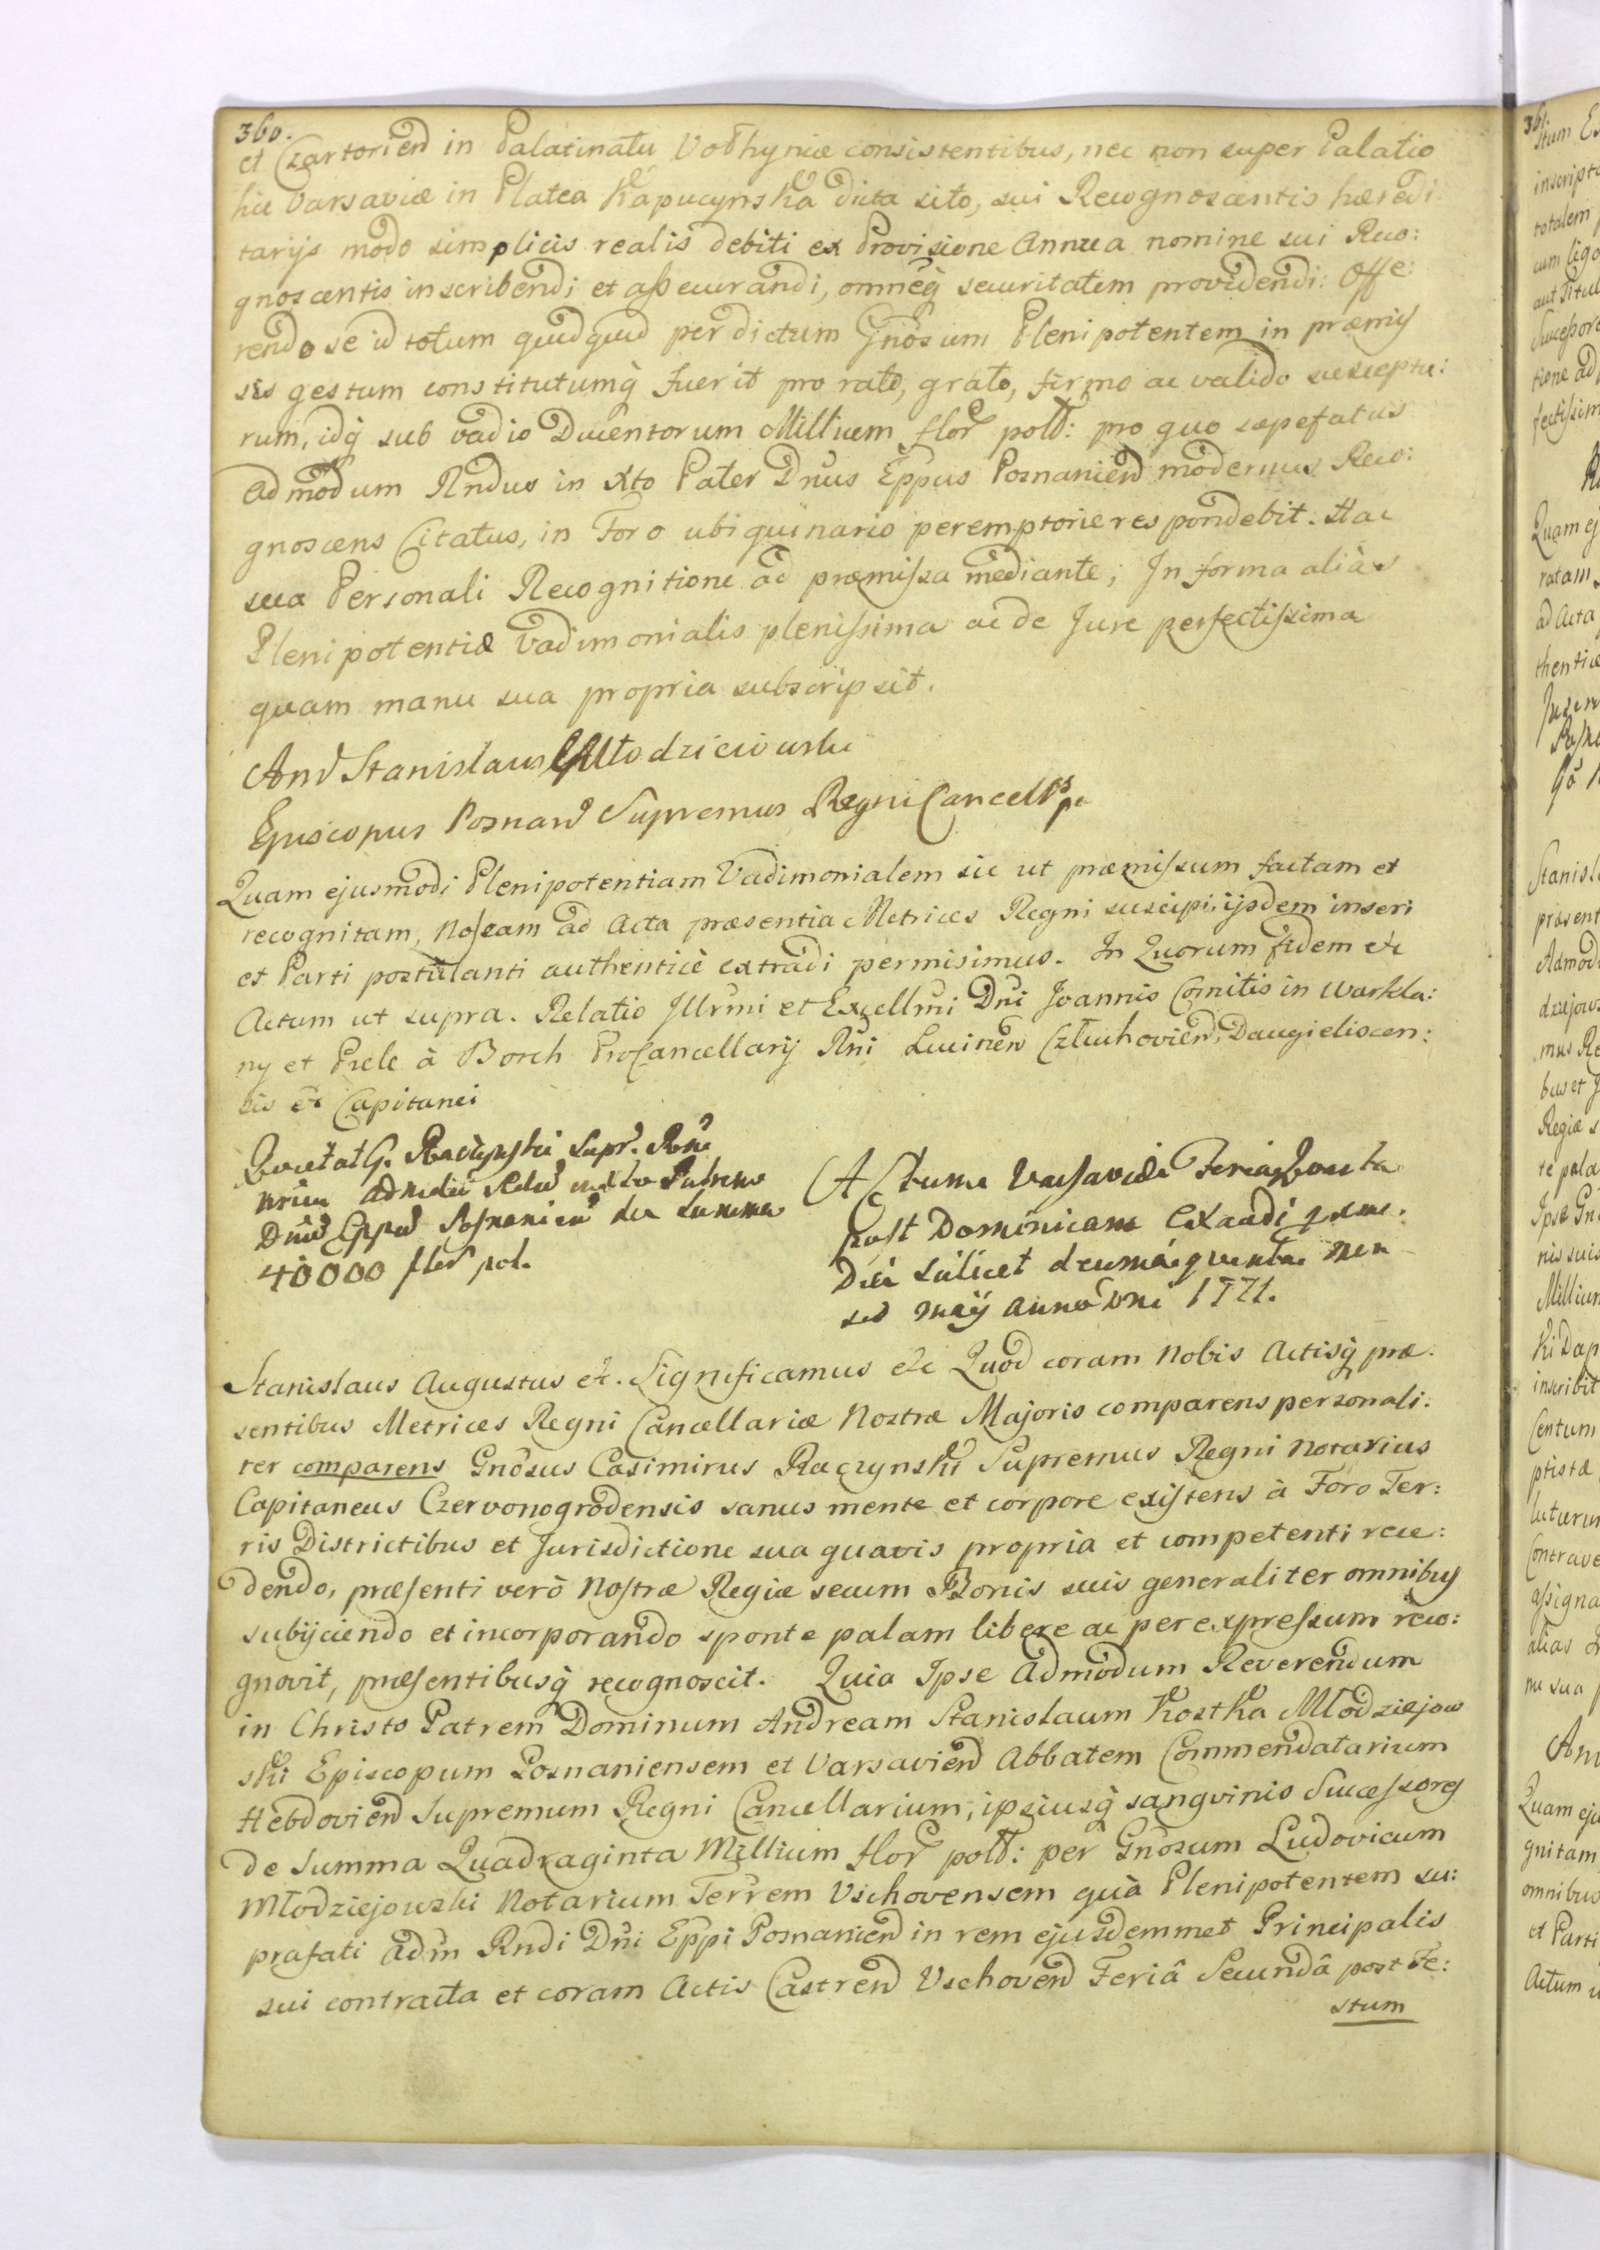 360.
et Czartorien in Palatinatu Volhyniæ consistentibus, nec non super Palatio
hic Varsaviæ in Platea Kapucynska dicta sito, sui Recognoscentis hæredi
tarijs modo simplicis realis debiti ex Provisione Annua nomine sui Reco:
gnoscentis inscribendi et assecurandi, omneq securitatem providendi: Offe:
rendo se id totum quidquid per dictum Gnosum Plenipotentem in præmis
sis gestum constitutumq fuerit pro rato, grato, firmo ac valido susceptu:
rum, idq sub vadio Ducentorum Millium flor pold: pro quo sæpefatus
Admodum Rndus in Xto Pater Dnus Eppus Posnanien modernus Reco:
gnoscens Citatus, in Foro ubiquinario peremptorie respondebit. Hac
sua Personali Recognitione ad præmissa mediante, In forma aliàs
Plenipotentiæ Vadimonialis plenissima ac de Jure perfectissima
quam manu sua propria subscripsit.
And Stanislaus Młodzieiowski
Episcopus Posnan Supremus Regni Cancell
Quam ejusmodi Plenipotentiam Vadimonialem sic ut præmissum factam et
recognitam, Nos eam ad Acta præsentia Metrices Regni suscipi, ijsdem inseri
et Parti postulanti authenticè extradi permisimus. In Quorum fidem etc
Actum ut supra. Relatio Illrmi et Excellmi Dni Joannis Comitis in Warkla:
ny et Prele à Borch ProCancellarij Rni Lucinen Człuchovien, Daugieliscen:
sis etc Capitanei
Quietat G. Raczynski Supr. Rni
Dnus Eppus Posnanien de summa
40000 flor pol.
Actum Varsaviæ Feria Quarta
post Dominicam Exaudi
Die scilicet decima quinta Men
sis Maij Anno Dni 1771.
Stanislaus Augustus etc. Significamus etc Quod coram Nobis Actisq præ
sentibus Metrices Regni Cancellariæ Nostræ Majoris comparens personali:
ter comparens Gnosus Casimirus Raczynski Supremus Regni Notarius
Capitaneus Czervonogrodensis sanus mente et corpore existens à Foro Ter:
ris Districtibus et Jurisdictione sua quavis propria et competenti rece:
dendo, præsenti verò Nostræ Regiæ secum Bonis suis generaliter omnibus
subijciendo et incorporando sponte palam libere ac per expressum reco:
gnovit, præsentibusq recognoscit. Quia Ipse Admodum Reverendum
in Christo Patrem Dominum Andream Stanislaum Kostka Młodziejow
ski Episcopum Posnaniensem et Varsavien Abbatem Commendatarium
Hebdovien Supremum Regni Cancellarium, ipsiusq sangvinis Successores
de Summa Quadraginta Millium flor pold: per Gnosum Ludovicum
Młodziejowski Notarium Terrem Vschovensem quà Plenipotentem su:
prafati Adm Rndi Dni Eppi Posnanien in rem ejusdemmet Principalis
sui contracta et coram Actis Castren Vschoven Feriâ Secundâ post Fe:
stum